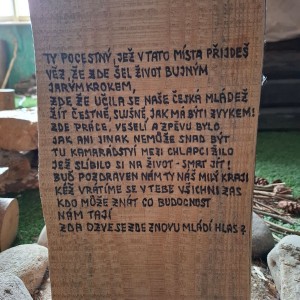 TY POCESTNÝ, JEŽ V TATO MÍSTA PŘIJDEŠ
VĚZ, ŽE ZDE ŠEL ŽIVOT BUJNÝM
JARÝM KROKEM,
ZDE ŽE UČILA SE NAŠE ČESKÁ MLÁDEŽ
ŽÍT ČESTNĚ, SLUŠNĚ, JAK MÁ BÝTI ZVYKEM!
ZDE PRÁCE, VESELÍ A ZPĚVU BYLO
JAK ANI JINAK NEMŮŽE SNAD BÝT
TU KAMARÁDSTVÍ MEZI CHLAPCI ŽILO
JEŽ SLÍBILO SI NA ŽIVOT - SMRT JÍT!
BUĎ POZDRAVEN NÁM TY NÁŠ MILÝ KRAJI
KÉŽ VRÁTÍME SE V TEBE VŠICHNI ZAS
KDO MŮŽE ZNÁT CO BUDOUCNOST
NÁM TAJÍ
ZDA OZVE SE ZDE ZNOVU MLÁDÍ HLAS?